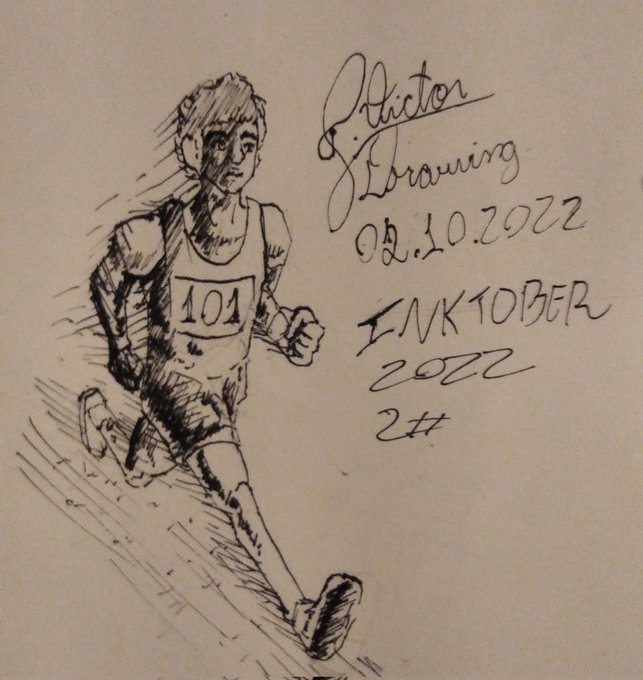 Victor
Drawing
02.10.2022
101
INKTOBER
2022
2#